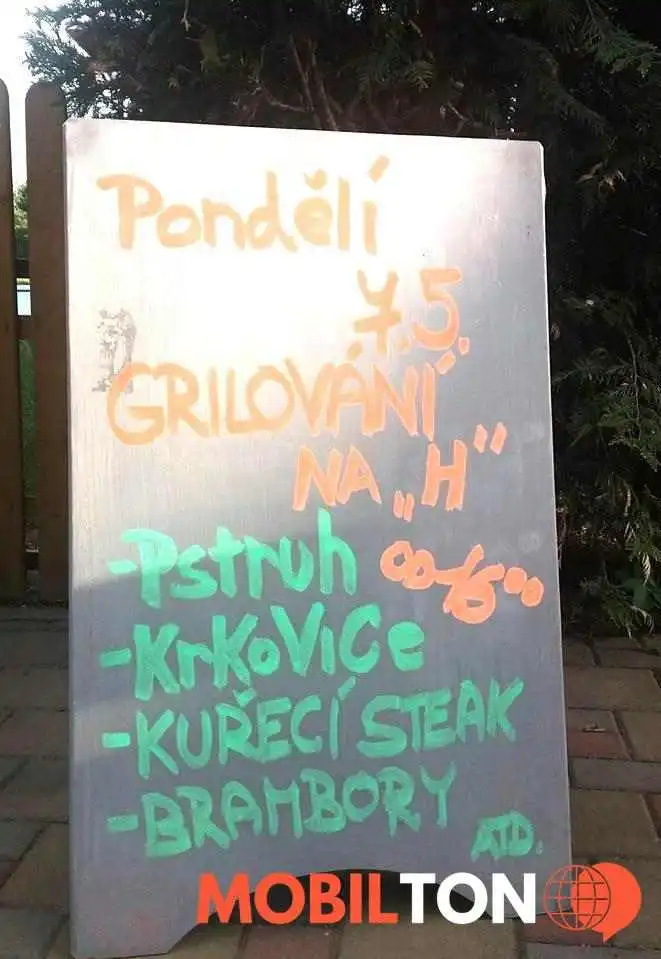 Pondělí
7.5.
GRILOVÁNÍ
NA „H"
-Pstruh
-KrKoVice
-KUŘECÍ STEAK
-BRAMBORY
ATD.
MOBILTON